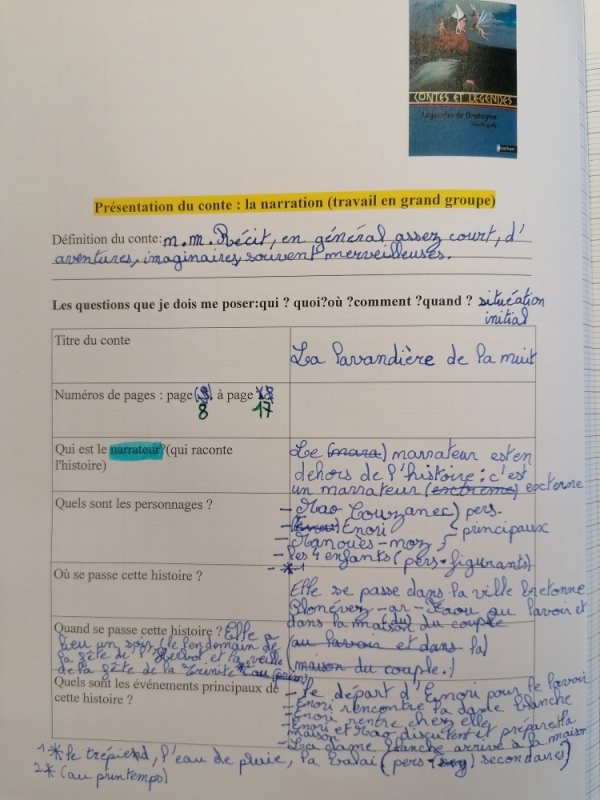 CONTES ET LÉGENDES
Légendes de Bretagne
Nathan
Présentation du conte : la narration (travail en grand groupe)
Définition du conte: n.m. Récit, en général assez court, d'
aventures, imaginaires, souvent merveilleuses.
Les questions que je dois me poser:qui ? quoi?où ?comment ?quand ? situcation
initial
Titre du conte
La lavandière de la nuit
Numéros de pages : page (9) à page 18
8 17
Qui est le narrateur?(qui raconte
l'histoire)
Le (nara) narrateur est en
dehors de l'histoire : c'est
un narrateur (exctreme) excterne
Quels sont les personnages ?
- Kao Couzanec) pers.
Enori - principaux
- Kanoués-noz
- les 4 enfants (pers. figurants)
- *1
Où se passe cette histoire ?
Elle se passe dans la ville bretonne
Plonévez-ar-Faou au lavoir et
dans la maison (du) du couple
(au lavoir et dans la)
(maison du couple.)
Quand se passe cette histoire ? Elle a
lieu un soir, le lendemain de
la fête de l'Herbot et la veille
de la fête de la Trinité (au prin)
Quels sont les événements principaux de
cette histoire ?
- Le départ d'Enori pour le lavoir
- Enori rencontre la dame blanche
- Enori rentre chez elle
- Enori et Kao discutent et préparent la
maison
- La dame blanche arrive à la maison
1* le trépied, l'eau de pluie, la balai (pers (seg) secondaires)
2* (au printempo)